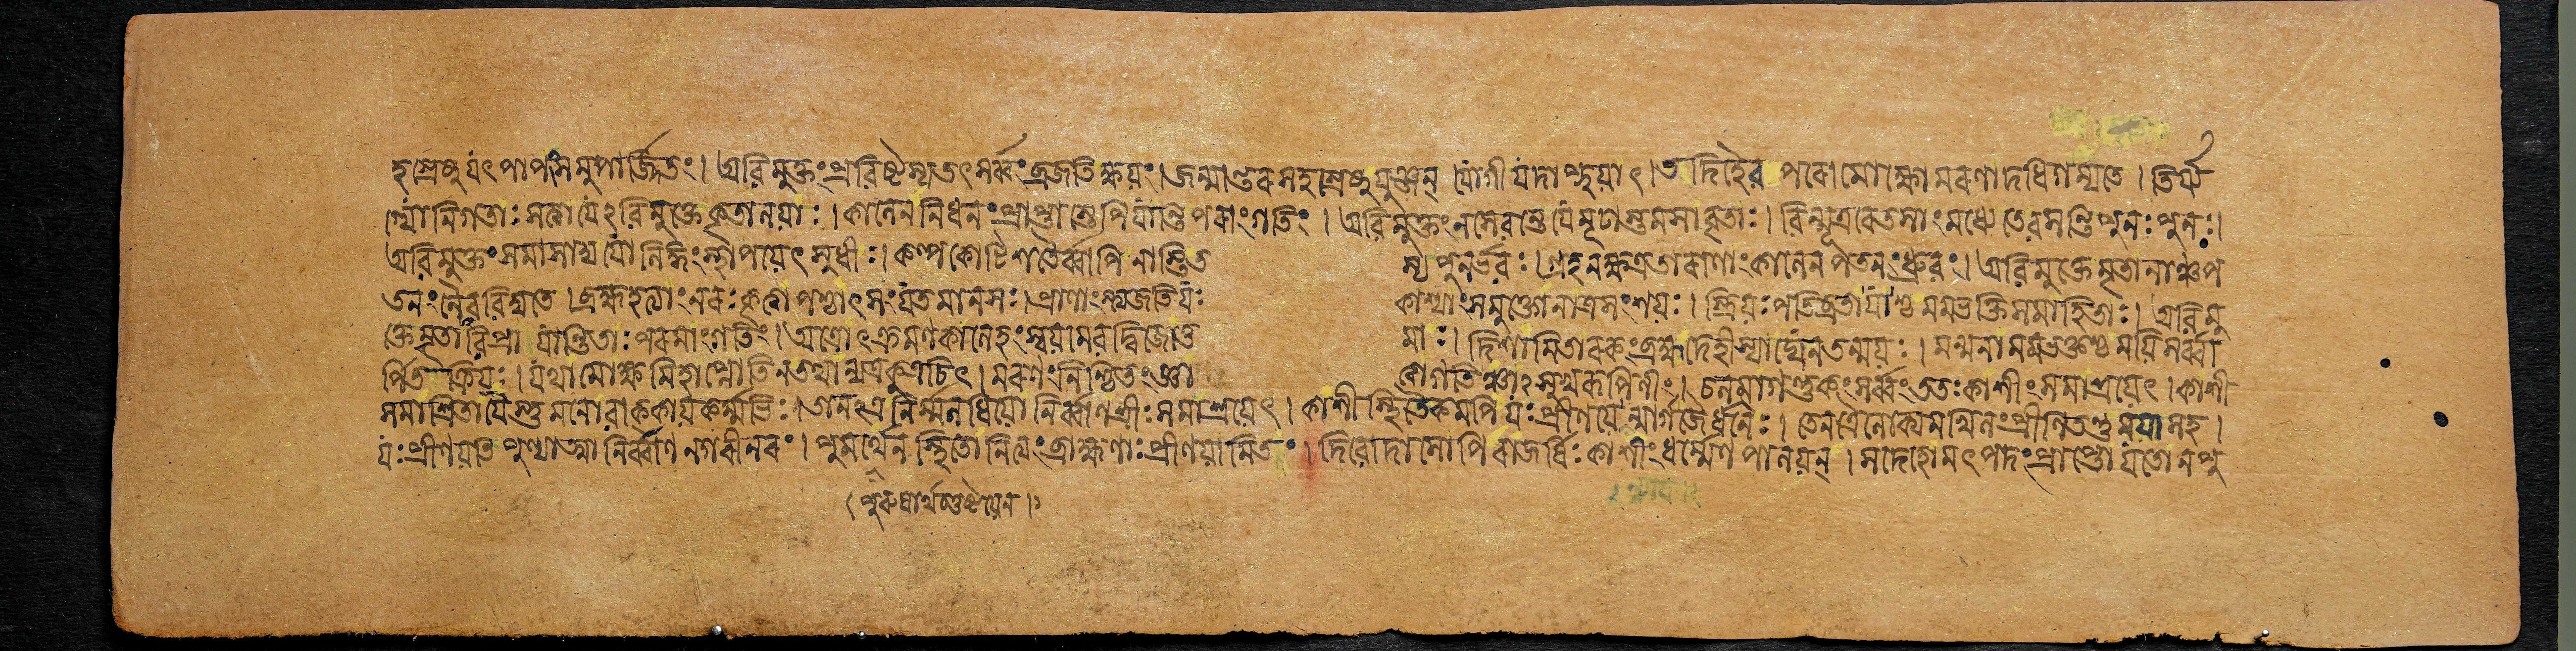 হস্রেষু যৎ পাপং সমুপার্জ্জিতং। অবিমুক্তং প্রবিষ্টস্য তৎ সর্ব্বং ব্রজতি ক্ষয়ং। জন্মান্তরসহস্রেষু যুঞ্জন্ যোগী যদাপ্নুয়াৎ। তদিহৈব পরো মোক্ষো মরণাদধিগম্যতে। তির্য্য
গ্যোনিগতাঃ সত্ত্বা যেঽবিমুক্তে কৃতালয়াঃ। কালেন নিধনং প্রাপ্তাস্তেপি যান্তি পরাং গতিং। অবিমুক্তং ন সেবন্তে যে মূঢাস্তমসাবৃতাঃ। বিন্মূত্ররেতসাং মধ্যে তে বসন্তি পুনঃ পুনঃ।
অবিমুক্তং সমাসাদ্য যো লিঙ্গং স্থাপয়েৎ সুধীঃ। কল্পকোটিশতৈর্ব্বাপি নাস্তি ত স্য পুনর্ভবঃ। গ্রহনক্ষত্রতারাণাং কালেন পতনং ধ্রুবং। অবিমুক্তে মৃতানাঞ্চ প
তনং নৈব বিদ্যতে। ব্রহ্মহত্যাং নরঃ কৃত্বা পশ্চাৎ সংযতমানসঃ। প্রাণাংস্ত্যজতি যঃ কাশ্যাং স মুক্তো নাত্র সংশয়ঃ। স্ত্রিয়ঃ পতিব্রতা যাশ্চ মমভক্তিসমাহিতাঃ। অবিমু
ক্তে মৃতা বিপ্রা যান্তি তাঃ পরমাং গতিং। অত্রোৎক্রমণকালেহং স্বয়মেব দ্বিজোত্ত মাঃ। দিশামি তারকং ব্রহ্ম দেহী স্যাদ্যেন তন্ময়ঃ। মন্মনা মম ভক্তশ্চ ময়ি সর্ব্বা
র্পিতক্রিয়ঃ। যথা মোক্ষমিহাপ্নোতি ন তথান্যত্র কুত্রচিৎ। মরণং নিশ্চিতং জ্ঞা ত্বা গতিঞ্চাঽসুখরূপিণীং। চলমাগন্তুকং সর্ব্বং ততঃ কাশীং সমাশ্রয়েৎ। কাশী
সমাশ্রিতা যৈস্তু মনোবাক্কায়কর্ম্মভিঃ। তানত্র নির্ম্মলধিয়ো নির্ব্বাণশ্রীঃ সমাশ্রয়েৎ। কাশীস্থিতৈকমপি যঃ প্রীণয়েন্মার্গজৈর্ধনৈঃ। তেন ত্রৈলোক্যমখিলং প্রীণিতন্তু ময়া সহ।
যঃ প্রীণয়তি পুণ্যাত্মা নির্ব্বাণনগরীনরং। পুমর্থেন স্থিতো নিত্যং ব্রাহ্মণাঃ প্রীণয়ামি তং। দিবোদাসোপি রাজর্ষিঃ কাশীং ধর্ম্মেণ পালয়ন্। সদেহো মৎপদং প্রাপ্তো যতো ন পু
(পুরুষার্থচতুষ্টয়েন।)